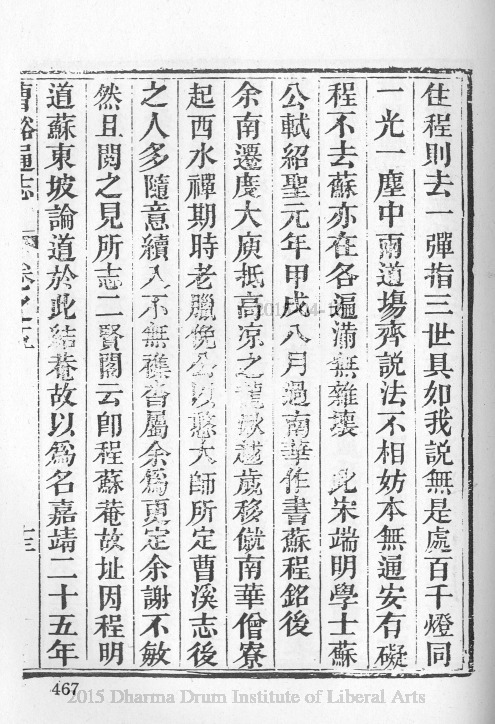 住程則去一彈指三世具如我説無是處百千燈同
一光一塵中兩道塲齊説法不相妨本無通安有礙
程不去蘇亦在各遍滿無雜壞　此宋端明學士蘇
公軾紹聖元年甲戌八月過南華作書蘇程銘後
余南遷度大庾抵高凉之龍湫越歲移僦南華僧寮
起西水禪期時老臘俛公以憨大師所定曹溪志後
之人多隨意續入不無穢沓屬余爲更定余謝不敏
然且閲之見所志二賢閣云卽程蘇菴故址因程明
道蘇東坡論道於此結菴故以爲名嘉靖二十五年
曹谿通志 卷之
467
2015 Dharma Drum Institute of Liberal Arts